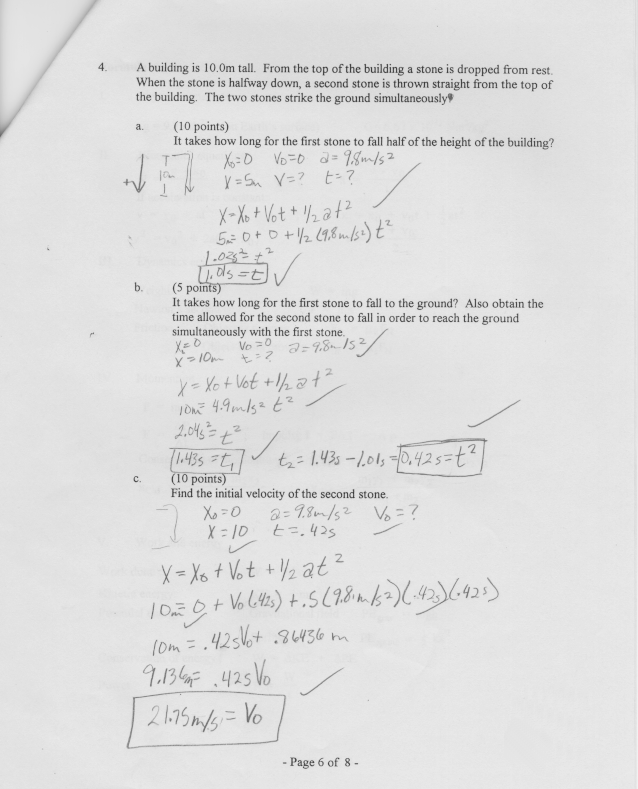 4. A building is 10.0m tall. From the top of the building a stone is dropped from rest.
When the stone is halfway down, a second stone is thrown straight from the top of
the building. The two stones strike the ground simultaneously
a. (10 points)
It takes how long for the first stone to fall half of the height of the building?
+ 10m X₀=0 V₀=0 a=9.8m/s²
X=5m V=? t=?
X=X₀+V₀t+1/2at²
5m=0+0+1/2(9.8m/s²)t²
1.02s²=t²
1.01s=t
b. (5 points)
It takes how long for the first stone to fall to the ground? Also obtain the
time allowed for the second stone to fall in order to reach the ground
simultaneously with the first stone.
X₀=0 V₀=0 a=9.8m/s²
X=10m t=?
X=X₀+V₀t+1/2at²
10m=4.9m/s²t²
2.04s²=t²
1.43s=t₁ t₂=1.43s-1.01s=0.42s=t²
c. (10 points)
Find the initial velocity of the second stone.
X₀=0 a=9.8m/s² V₀=?
X=10 t=.42s
X=X₀+V₀t+1/2at²
10m=0+V₀(.42s)+.5(9.8m/s²)(.42s)(.42s)
10m=.42sV₀+.86436m
9.136m=.42sV₀
21.75m/s=V₀
- Page 6 of 8 -